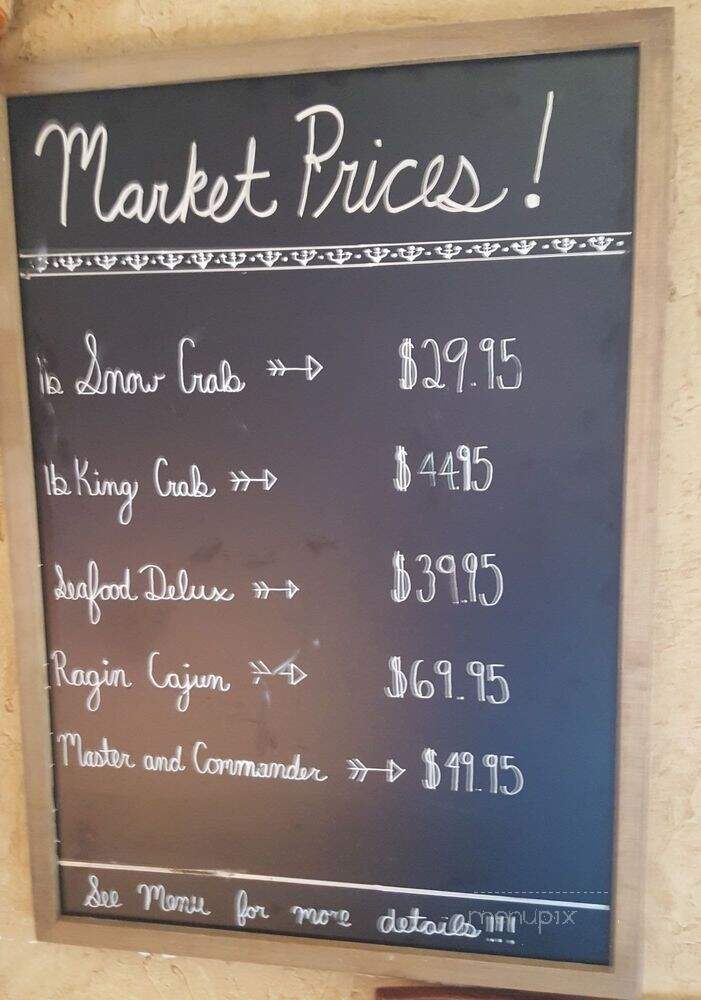 Market Prices!
lb Snow Crab $29.95
lb King Crab $44.95
Seafood Delux $39.95
Ragin Cajun $69.95
Master and Commander $49.95
See Menu for more details!!!
menupix